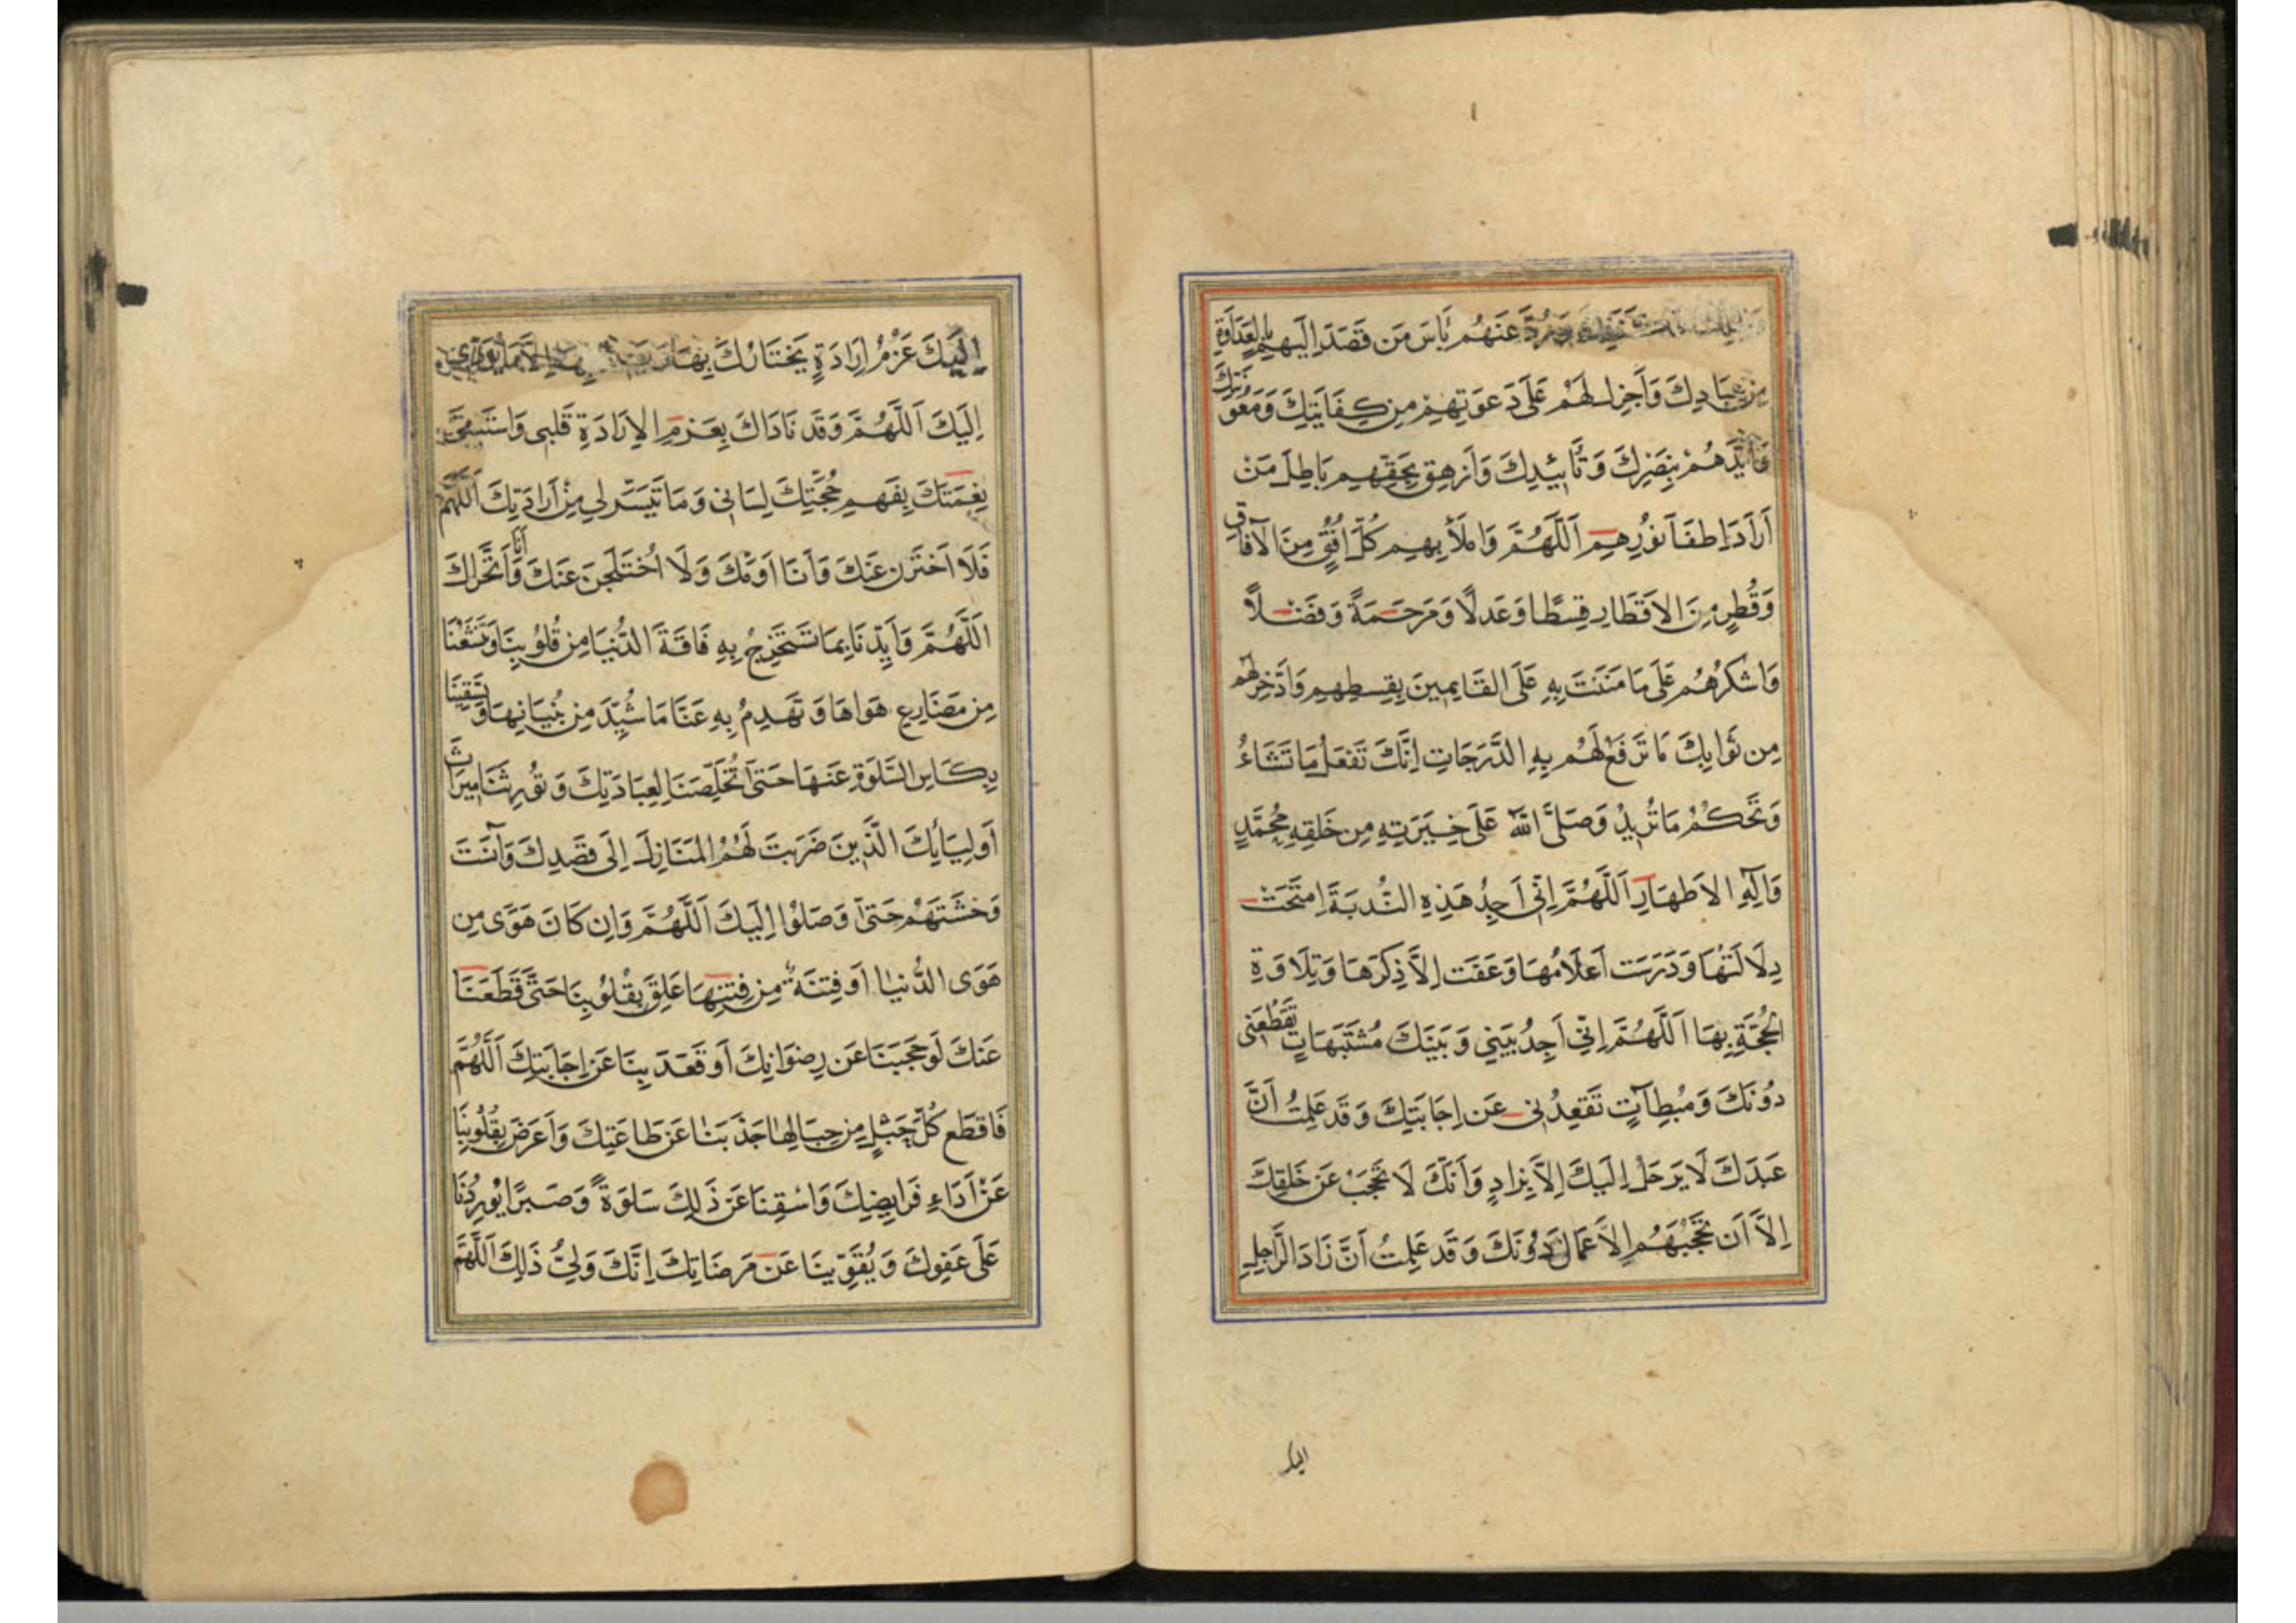 عَنْهُم بَأسَ مَن قَصَدَ اِلَيهِم بِالعَدَاوَةِ
مِن عِبَادِكَ وَاَجزِل لَهُمْ عَلَى دَعوَتِهِمْ مِن كِفَايَتِكَ وَمَعُونَتِكَ
وَاَيِّدهُمْ بِنَصرِكَ وَتَأيِيدِكَ وَاَزهِق بِحَقِّهِم بَاطِلَ مَنْ
اَرَادَ اِطفَآءَ نُورِهِم اَللَّهُمَّ وَاملَأ بِهِم كُلَّ اُفُقٍ مِنَ الآفَاقِ
وَقُطرٍ مِنَ الاَقطَارِ قِسطًا وَعَدلًا وَمَرحَمَةً وَفَضلًا
وَاشكُرهُم عَلَى مَا مَنَنتَ بِهِ عَلَى القَايِمِينَ بِقِسطِهِم وَادَّخِر لَهُم
مِن ثَوَابِكَ مَا تَرفَعُ لَهُم بِهِ الدَّرَجَاتِ اِنَّكَ تَفعَلُ مَا تَشَاءُ
وَتَحكُمُ مَا تُرِيدُ وَصَلَّى اللهُ عَلَى خِيَرَتِهِ مِن خَلقِهِ مُحَمَّدٍ
وَآلِهِ الاَطهَارِ اَللَّهُمَّ اِنِّى اَجِدُ هَذِهِ النُّدبَةَ امتَحَت
دِلَالَتُهَا وَدَرَسَت اَعلَامُهَا وَعَفَت اِلاَّ ذِكرَهَا وَتِلَاوَةِ
الحُجَّةِ بِهَا اَللَّهُمَّ اِنِّي اَجِدُ بَينِي وَبَينَكَ مُشتَبَهَاتٍ تَقطَعُنِى
دُونَكَ وَمُبطِآتٍ تَقعِدُنِى عَن اِجَابَتِكَ وَقَد عَلِمتُ اَنَّ
عَبدَكَ لَا يَرحَلُ اِلَيكَ اِلاَّ بِزَادٍ وَاَنَّكَ لَا تُحجَبُ عَن خَلقِكَ
اِلاَّ اَن تَحجُبَهُم الاَعمَالُ دُونَكَ وَقَد عَلِمتُ اَنَّ زَادَ الرَّاحِلِ
اِلَيكَ
اِلَيكَ عَزمُ اِرَادَةٍ يَختَارُكَ بِهَا
اِلَيكَ اَللَّهُمَّ وَقَد نَادَاكَ بِعَزمِ الاِرَادَةِ قَلبِى
نِعمَتَكَ بِفَهمِ حُجَّتِكَ لِسَانِى وَمَا تَيَسَّرَ لِي مِنْ اَرَادَتِكَ اَللَّهُمَّ
فَلَا اَختَزَن عَنكَ وَاَنَا اَومُكَ وَلَا اُختَلَجَنَّ عَنكَ وَاَنَا اَتَحَرَّاكَ
اَللَّهُمَّ وَاَيِّدنَا بِمَا تَستَخرِجُ بِهِ فَاقَةَ الدُّنيَا مِن قُلُوبِنَا وَتَنعَشُنَا
مِن مَصَارِعِ هَوَاهَا وَتَهدِمُ بِهِ عَنَّا مَا شُيِّدَ مِن بُنيَانِهَا وَتَسقِينَا
بِكَاسِ السَّلوَةِ عَنهَا حَتَّى تُخَلِّصَنَا لِعِبَادَتِكَ وَتُورِثَنَا مِيرَاثَ
اَولِيَائِكَ الَّذِينَ ضَرَبتَ لَهُمُ المَنَازِلَ اِلَى قَصدِكَ وَآنَستَ
وَحشَتَهُمْ حَتَّى وَصَلُوا اِلَيكَ اَللَّهُمَّ وَاِن كَانَ هَوَى مِن
هَوَى الدُّنيَا اَو فِتنَةٌ مِن فِتَنِهَا عَلِقَ بِقُلُوبِنَا حَتَّى قَطَعَنَا
عَنكَ لَو حَجَبَنَا عَن رِضوَانِكَ اَو قَعَدَ بِنَا عَن اِجَابَتِكَ اَللَّهُمَّ
فَاقطَع كُلَّ حَبلٍ مِن حِبَالِهَا جَذَبَنَا عَن طَاعَتِكَ وَاَعرَضَ بِقُلُوبِنَا
عَنْ اَدَاءِ فَرَايِضِكَ وَاسْقِنَا عَن ذَلِكَ سَلوَةً وَصَبرًا يُورِدُنَا
عَلَى عَفوِكَ وَيُقَوِّينَا عَن مَرضَاتِكَ اِنَّكَ وَلِيُّ ذَلِكَ اَللَّهُمَّ